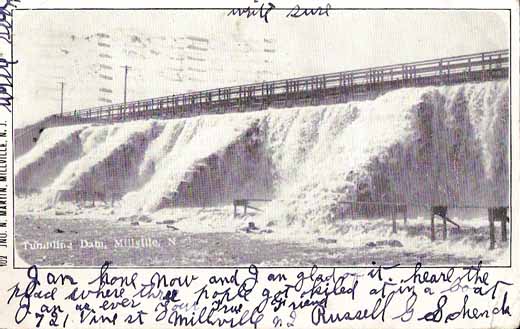 write sure
write soon
102 JNO. N. MARTIN, MILLVILLE, N. J.
Tumbling Dam, Millville, N
I am home now and I an glad of it. heare the
place where three pople get skiled at in a boat
I an as ever your True Friend
721 Vine st Millville N J Russell G Schenck